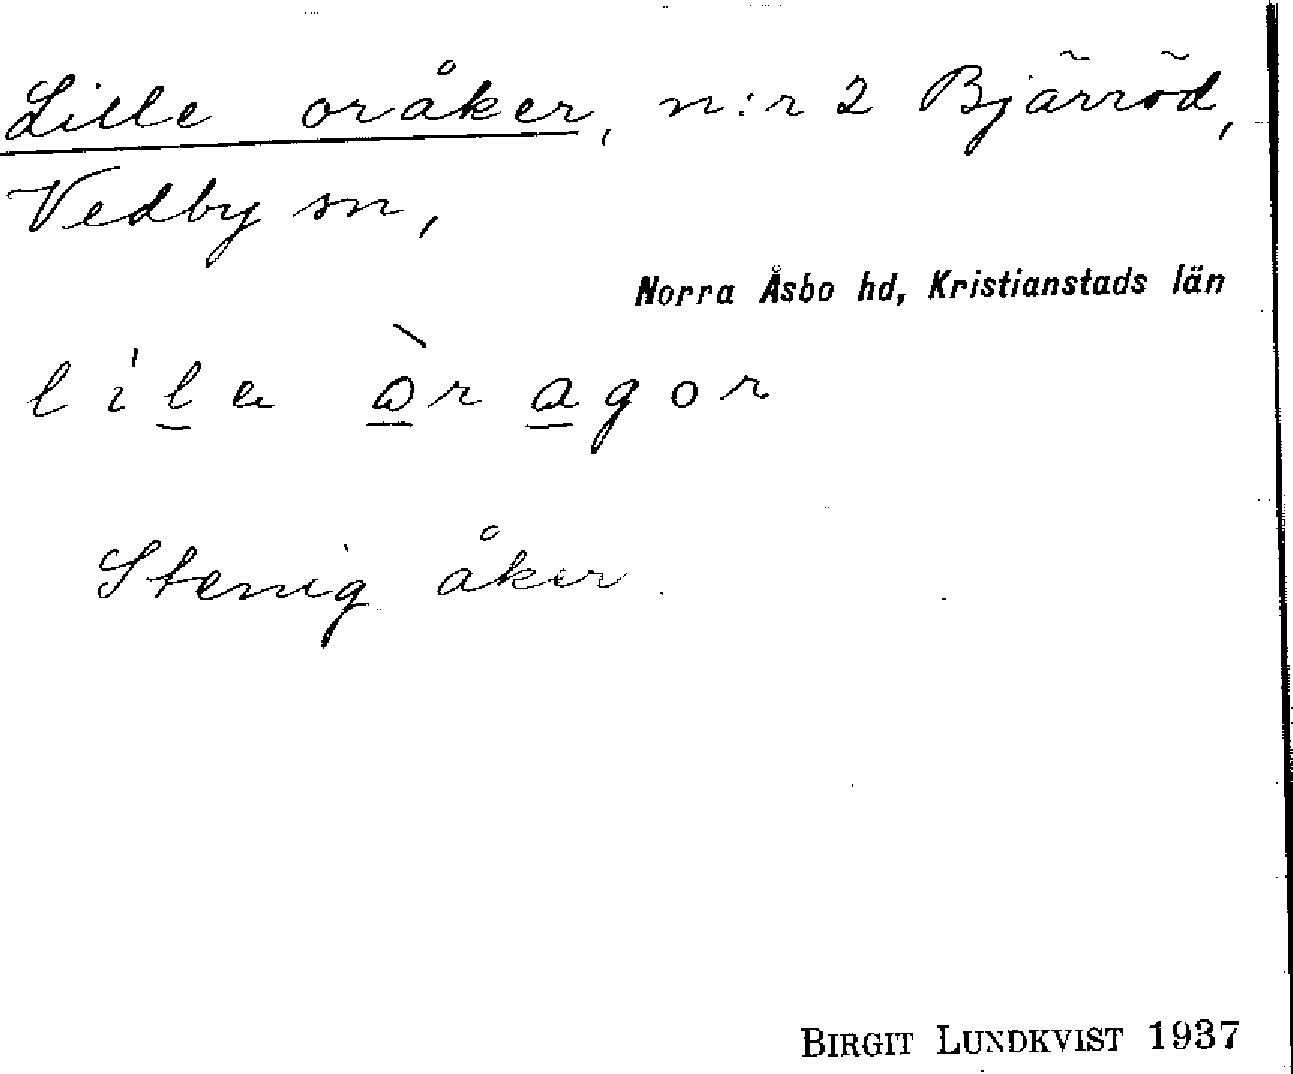 Lille oråker, n:r 2 Bjärröd,
Vedby sn,
Norra Åsbo hd, Kristianstads län
lila òragor
Stenig åker.
BIRGIT LUNDKVIST 1937